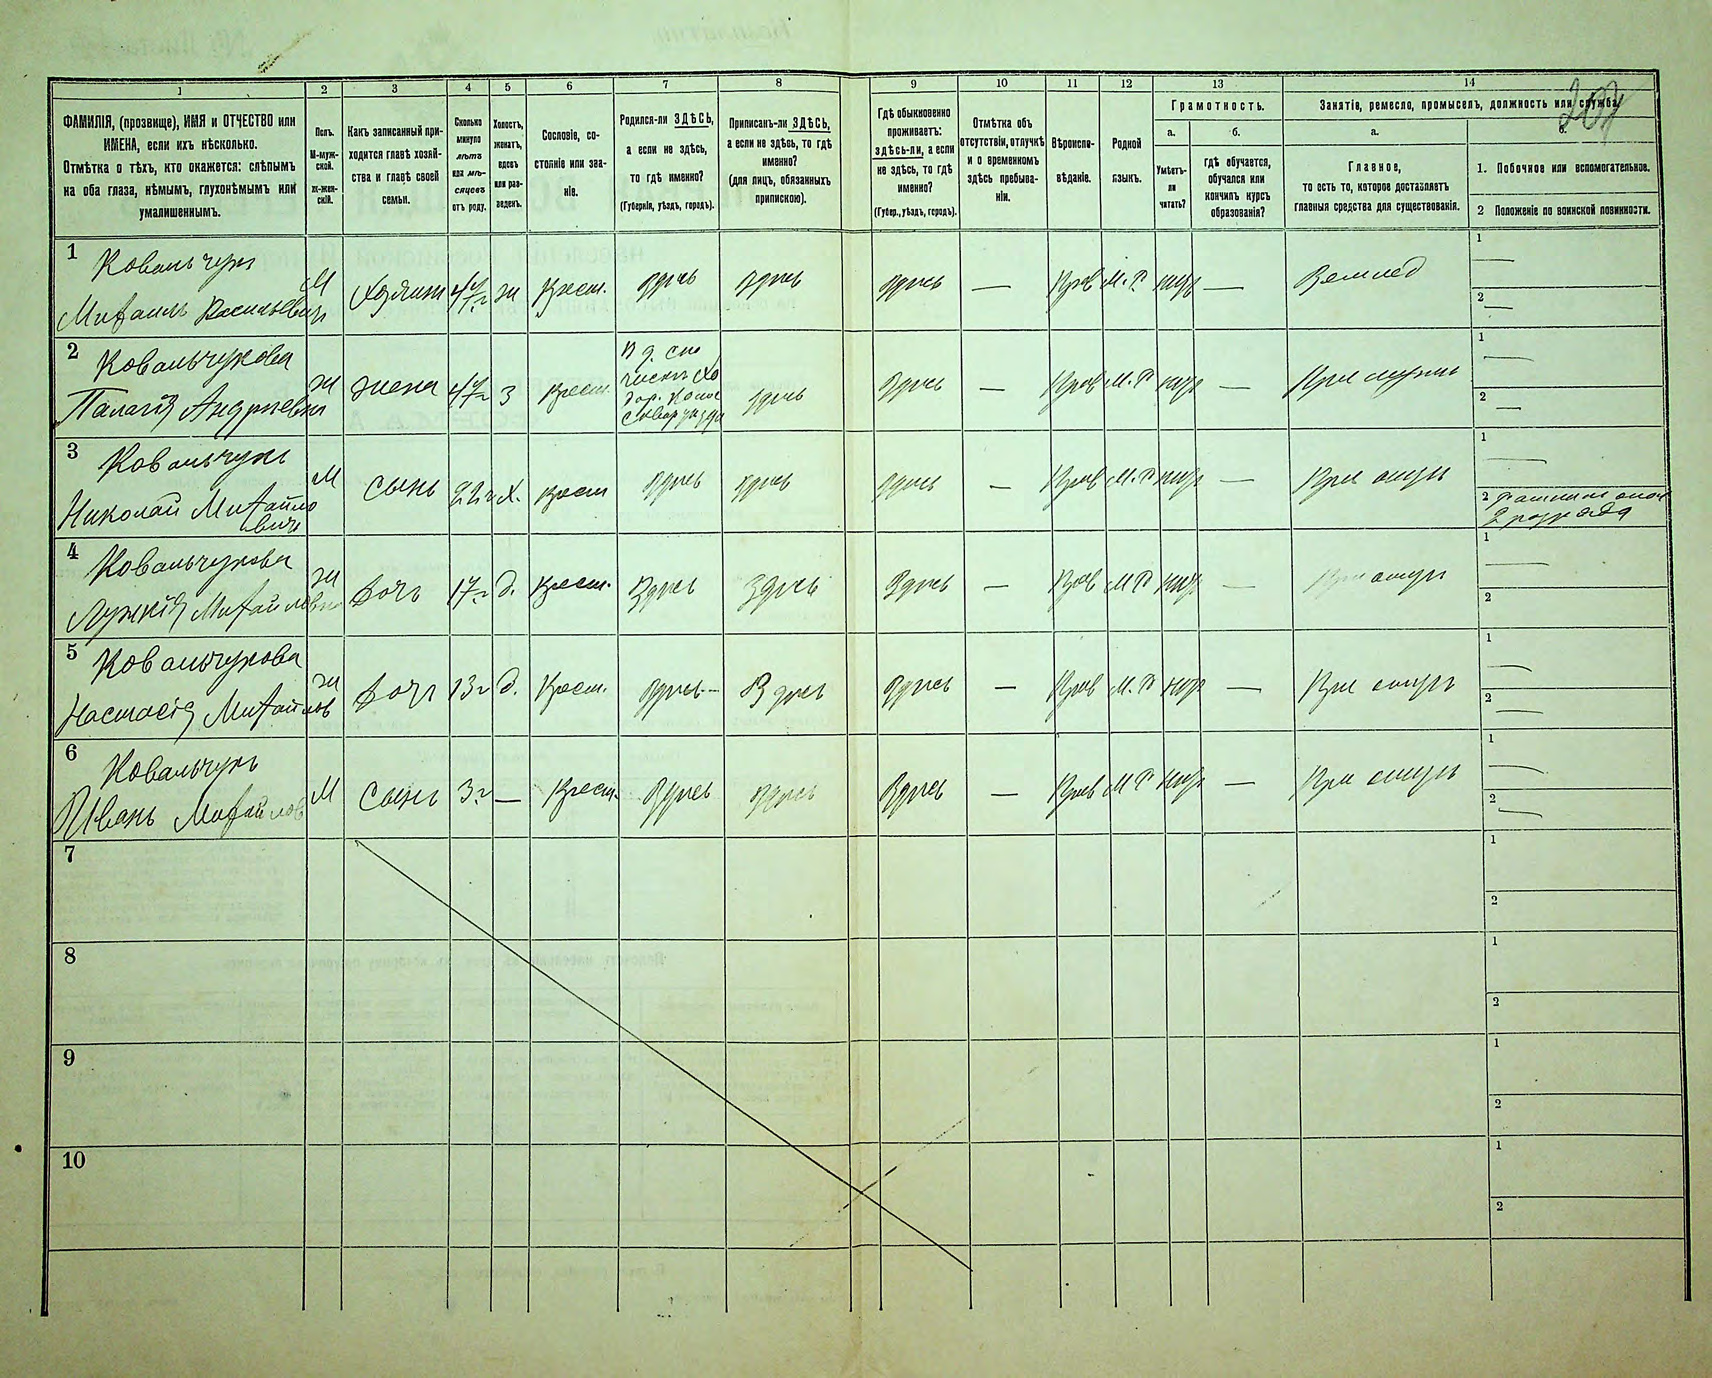 207
1 2 3 4 5 6 7 8 9 10 11 12 13 14
ФАМИЛІЯ, (прозвище), ИМЯ и ОТЧЕСТВО или
ИМЕНА, если ихъ нѣсколько.
Отмѣтка о тѣхъ, кто окажется: слѣпымъ
на оба глаза, нѣмымъ, глухонѣмымъ или
умалишеннымъ.
Полъ.
М-муж-
ской.
ж-жен-
скій.
Какъ записанный при-
ходится главѣ хозяй-
ства и главѣ своей
семьи.
Сколько
минуло
лѣтъ
или мѣ-
сяцевъ
отъ роду.
Холостъ,
женатъ,
вдовъ
или раз-
веденъ.
Сословіе, со-
стояніе или зва-
ніе.
Родился-ли ЗДѢСЬ,
а если не здѣсь,
то гдѣ именно?
(Губернія, уѣздъ, городъ).
Приписанъ-ли ЗДѢСЬ,
а если не здѣсь, то гдѣ
именно?
(для лицъ, обязанныхъ
припискою).
Гдѣ обыкновенно
проживаетъ:
здѣсь-ли, а если
не здѣсь, то гдѣ
именно?
(Губер., уѣздъ, городъ).
Отмѣтка объ
отсутствіи, отлучкѣ
и о временномъ
здѣсь пребыва-
ніи.
Вѣроиспо-
вѣданіе.
Родной
языкъ.
Грамотность.
а.
Умѣетъ-
ли
читать?
б.
гдѣ обучается,
обучался или
кончилъ курсъ
образованія?
Занятіе, ремесло, промыселъ, должность или служба.
а.
Главное,
то есть то, которое доставляетъ
главныя средства для существованія.
б.
1. Побочное или вспомогательное.
2 Положеніе по воинской повинности.
1 Ковальчукъ
Михаилъ Васильевичъ
М Хозяинъ 47г ж Крест. Здѣсь Здѣсь Здѣсь — Прав М. Р. нѣтъ — Землед
1 —
2 —
2 Ковальчукова
Палагія Андреевна
ж жена 47г З Крест. здѣсь Здѣсь — Прав М. Р нѣтъ — При мужѣ
1 —
2 —
3 Ковальчукъ
Николай Михайло
вичъ
М сынъ 22г Х. Крест Здѣсь здѣсь Здѣсь — Прав М. Р нѣтъ — При отцѣ
1 —
2 2 разряда
4 Ковальчукова
Луккія Михайловна
ж дочь 17г д. Крест. Здѣсь Здѣсь Здѣсь — Прав М Р нѣтъ — При отцѣ
1 —
2
5 Ковальчукова
Настасія Михайлов
ж дочь 13г д. Крест. Здѣсь Здѣсь Здѣсь — Прав М. Р нѣтъ — При отцѣ
1 —
2 —
6 Ковальчукъ
Иванъ Михайлов
М сынъ 3г — Крест. Здѣсь Здѣсь Здѣсь — Прав М Р нѣтъ — При отцѣ
1 —
2 —
7
1
2
8
1
2
9
1
2
10
1
2